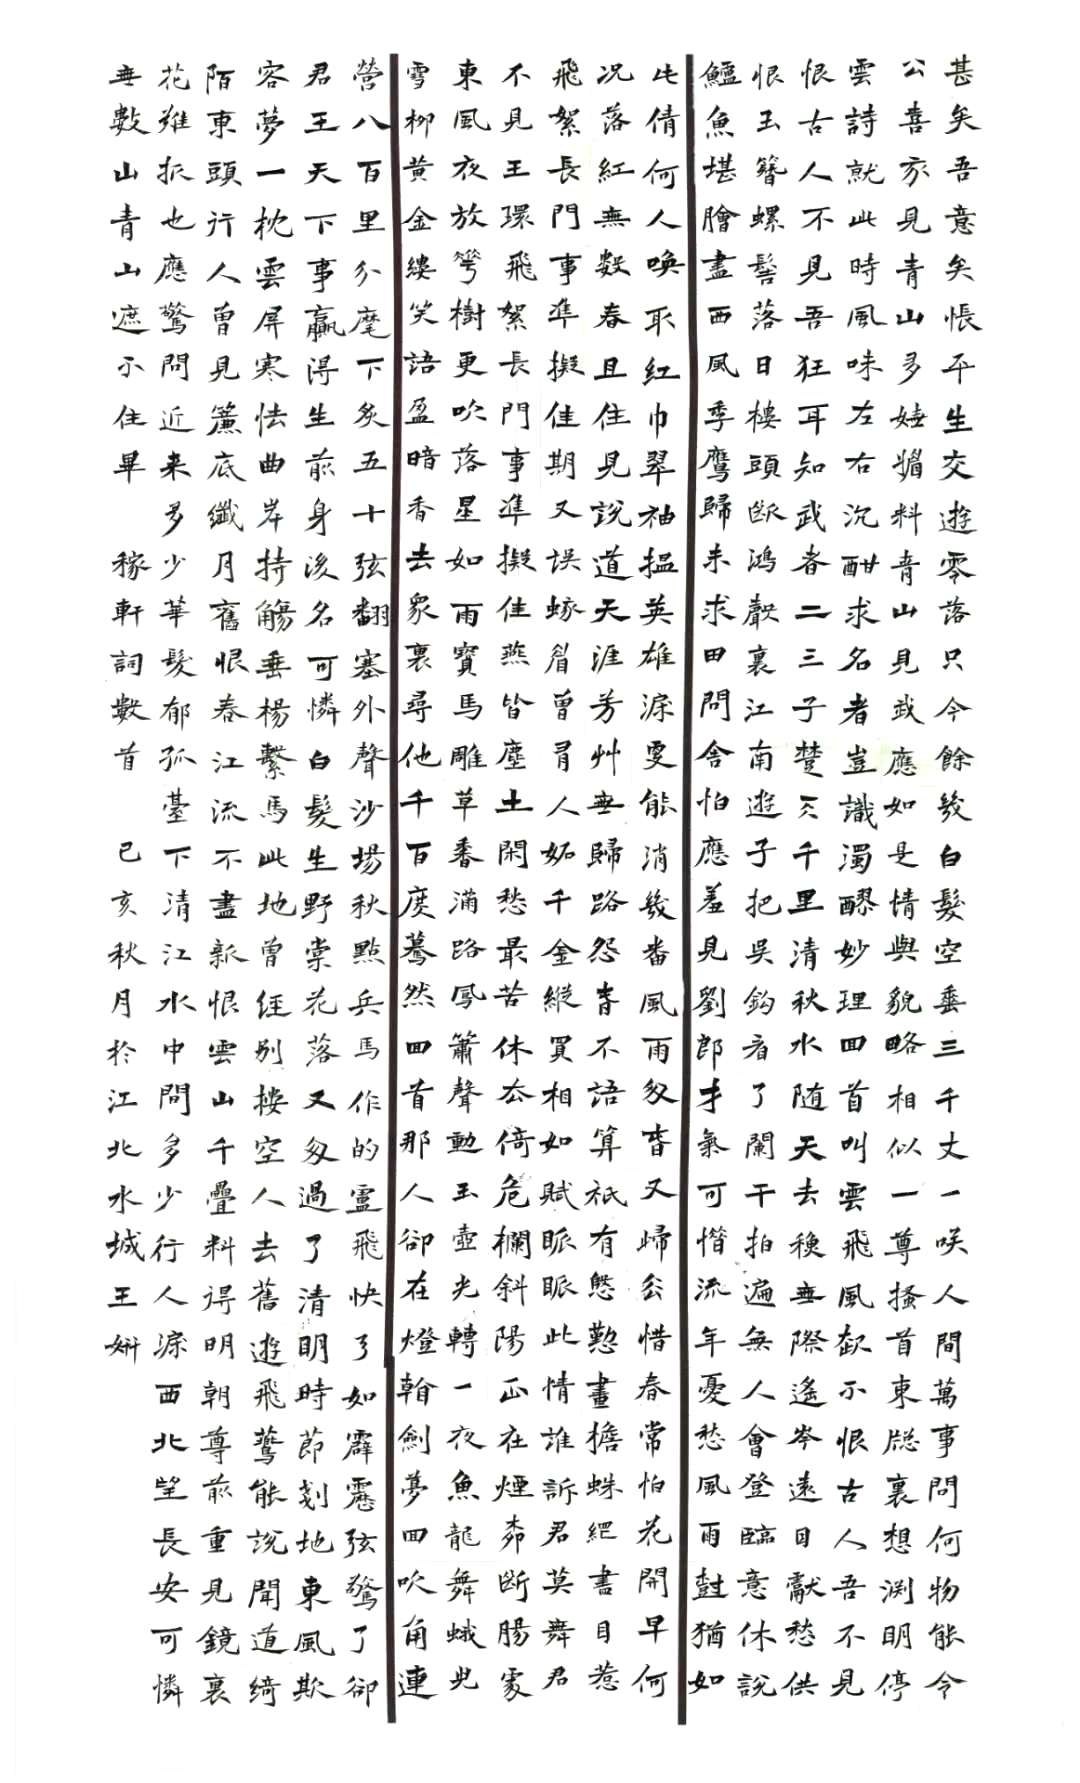 甚矣吾意矣悵平生交遊零落只今餘幾白髮空垂三千丈一咲人間萬事問何物能令
公喜我見青山多嫵媚料青山見我應如是情與貌略相似一尊搔首東牕裏想渊明停
雲詩就此時風味左右沉酣求名者豈識濁醪妙理回首叫雲飛風起不恨古人吾不見
恨古人不見吾狂耳知我者二三子楚天千里清秋水随天去穐無際遙岑遠目獻愁供
恨玉簪螺髻落日樓頭斷鴻聲裏江南遊子把吳鈎看了闌干拍遍無人會登臨意休說
鱸魚堪膾盡西風季鷹歸未求田問舍怕應羞見劉郎才氣可惜流年憂愁風雨樹猶如
此倩何人喚取紅巾翠袖揾英雄淚更能消幾番風雨匆春又歸去惜春常怕花開早何
况落紅無数春且住見說道天涯芳艸無歸路怨春不語算祇有慇懃畫檐蛛網盡日惹
飛絮長門事準擬佳期又誤蛾眉曾有人妬千金縱買相如賦脈脈此情誰訴君莫舞君
不見玉環飛絮長門事準擬佳燕皆塵土閑愁最苦休去倚危欄斜陽正在煙柳断腸處
東風夜放花樹更吹落星如雨寶馬雕草香滿路鳳簫聲動玉壺光轉一夜魚龍舞蛾兒
雪柳黄金縷笑語盈暗香去眾裏尋他千百度驀然回首那人卻在燈劍夢回吹角連
營八百里分麾下炙五十弦翻塞外聲沙場秋點兵馬作的盧飛快弓如霹靂弦驚了卻
君王天下事贏得生前身後名可憐白髮生野棠花落又匆過了清明時節剗地東風欺
客夢一枕雲屏寒怯曲岸持觴垂楊繫馬此地曾經別樓空人去舊遊飛鷰能說聞道綺
陌東頭行人曾見簾底纖月舊恨春江流不盡新恨雲山千疊料得明朝尊前重見鏡裏
花難折也應驚問近来多少華髮郁孤臺下清江水中間多少行人淚西北望長安可憐
無數山青山遮不住畢 稼軒詞數首 己亥秋月於江北水城王妍